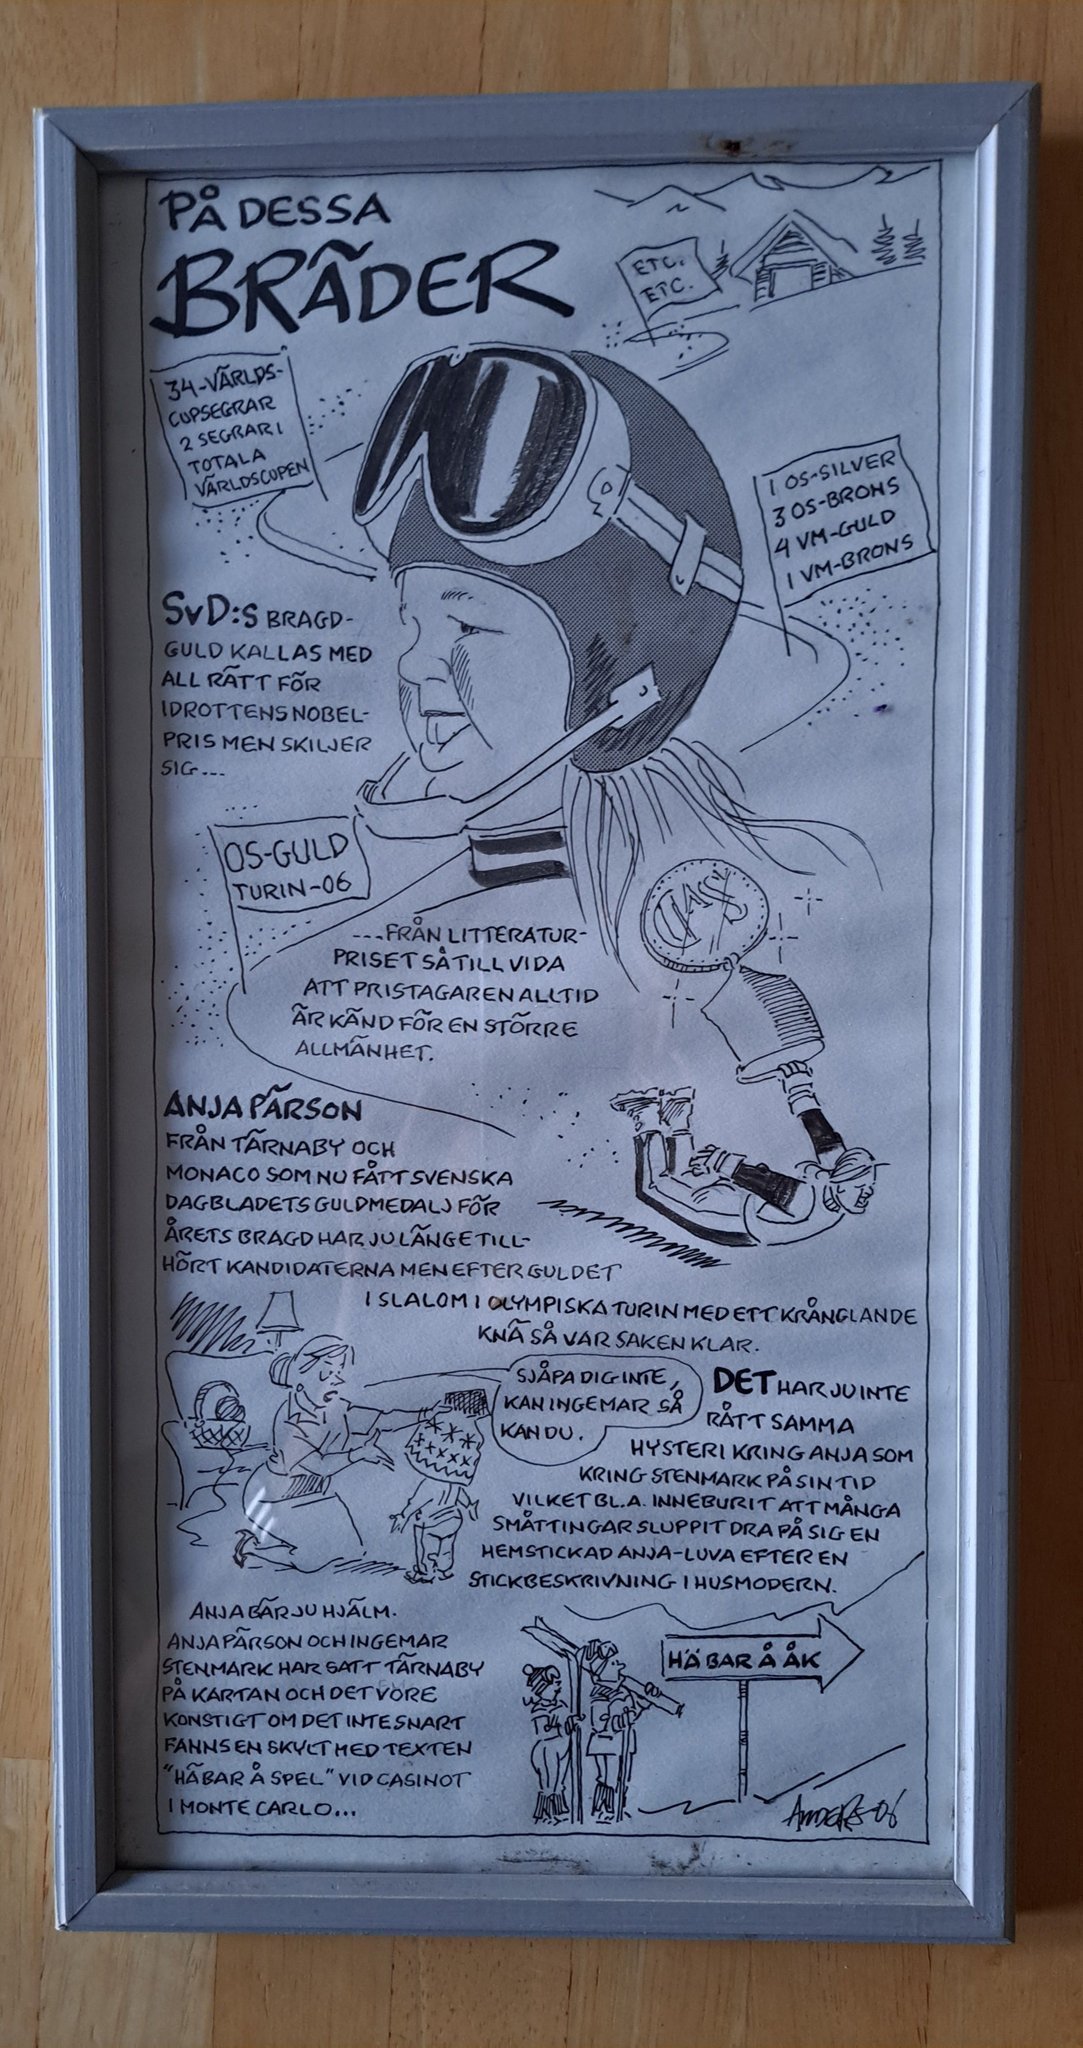 PÅ DESSA
BRÄDER
ETC.
ETC.
34-VÄRLDS-
CUPSEGRAR
2 SEGRAR I
TOTALA
VÄRLDSCUPEN
1 OS-SILVER
3 OS-BRONS
4 VM-GULD
1 VM-BRONS
SvD:S BRAGD-
GULD KALLAS MED
ALL RÄTT FÖR
IDROTTENS NOBEL-
PRIS MEN SKILJER
SIG...
OS-GULD
TURIN-06
...FRÅN LITTERATUR-
PRISET SÅ TILL VIDA
ATT PRISTAGAREN ALLTID
ÄR KÄND FÖR EN STÖRRE
ALLMÄNHET.
ANJA PÄRSON
FRÅN TÄRNABY OCH
MONACO SOM NU FÅTT SVENSKA
DAGBLADETS GULDMEDALJ FÖR
ÅRETS BRAGD HAR JU LÄNGE TILL-
HÖRT KANDIDATERNA MEN EFTER GULDET
I SLALOM I OLYMPISKA TURIN MED ETT KRÅNGLANDE
KNÄ SÅ VAR SAKEN KLAR.
SJÅPA DIG INTE,
KAN INGEMAR SÅ
KAN DU.
DET HAR JU INTE
RÅTT SAMMA
HYSTERI KRING ANJA SOM
KRING STENMARK PÅ SIN TID
VILKET BL.A. INNEBURIT ATT MÅNGA
SMÅTTINGAR SLUPPIT DRA PÅ SIG EN
HEMSTICKAD ANJA-LUVA EFTER EN
STICKBESKRIVNING I HUSMODERN.
ANJA BÄR JU HJÄLM.
ANJA PÄRSON OCH INGEMAR
STENMARK HAR SATT TÄRNABY
PÅ KARTAN OCH DET VORE
KONSTIGT OM DET INTE SNART
FANNS EN SKYLT MED TEXTEN
"HÄ BAR Å SPEL" VID CASINOT
I MONTE CARLO...
HÄ BAR Å ÅK
ANDERS-06